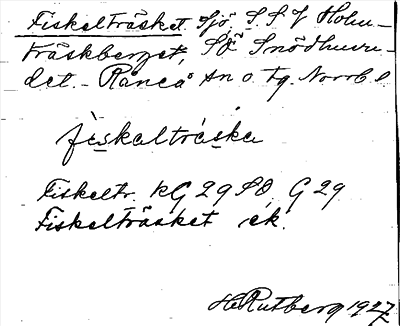 Fiskelträsket. Sjö, S. S. V Holm-
träskberget, SÖ Snödhuvu-
det. - Råneå sn o. tg. Norrb l.
fiskalträska
Fiskeltr. kG 29 SO, G 29
Fiskelträsket ek.
H Rutberg 1927